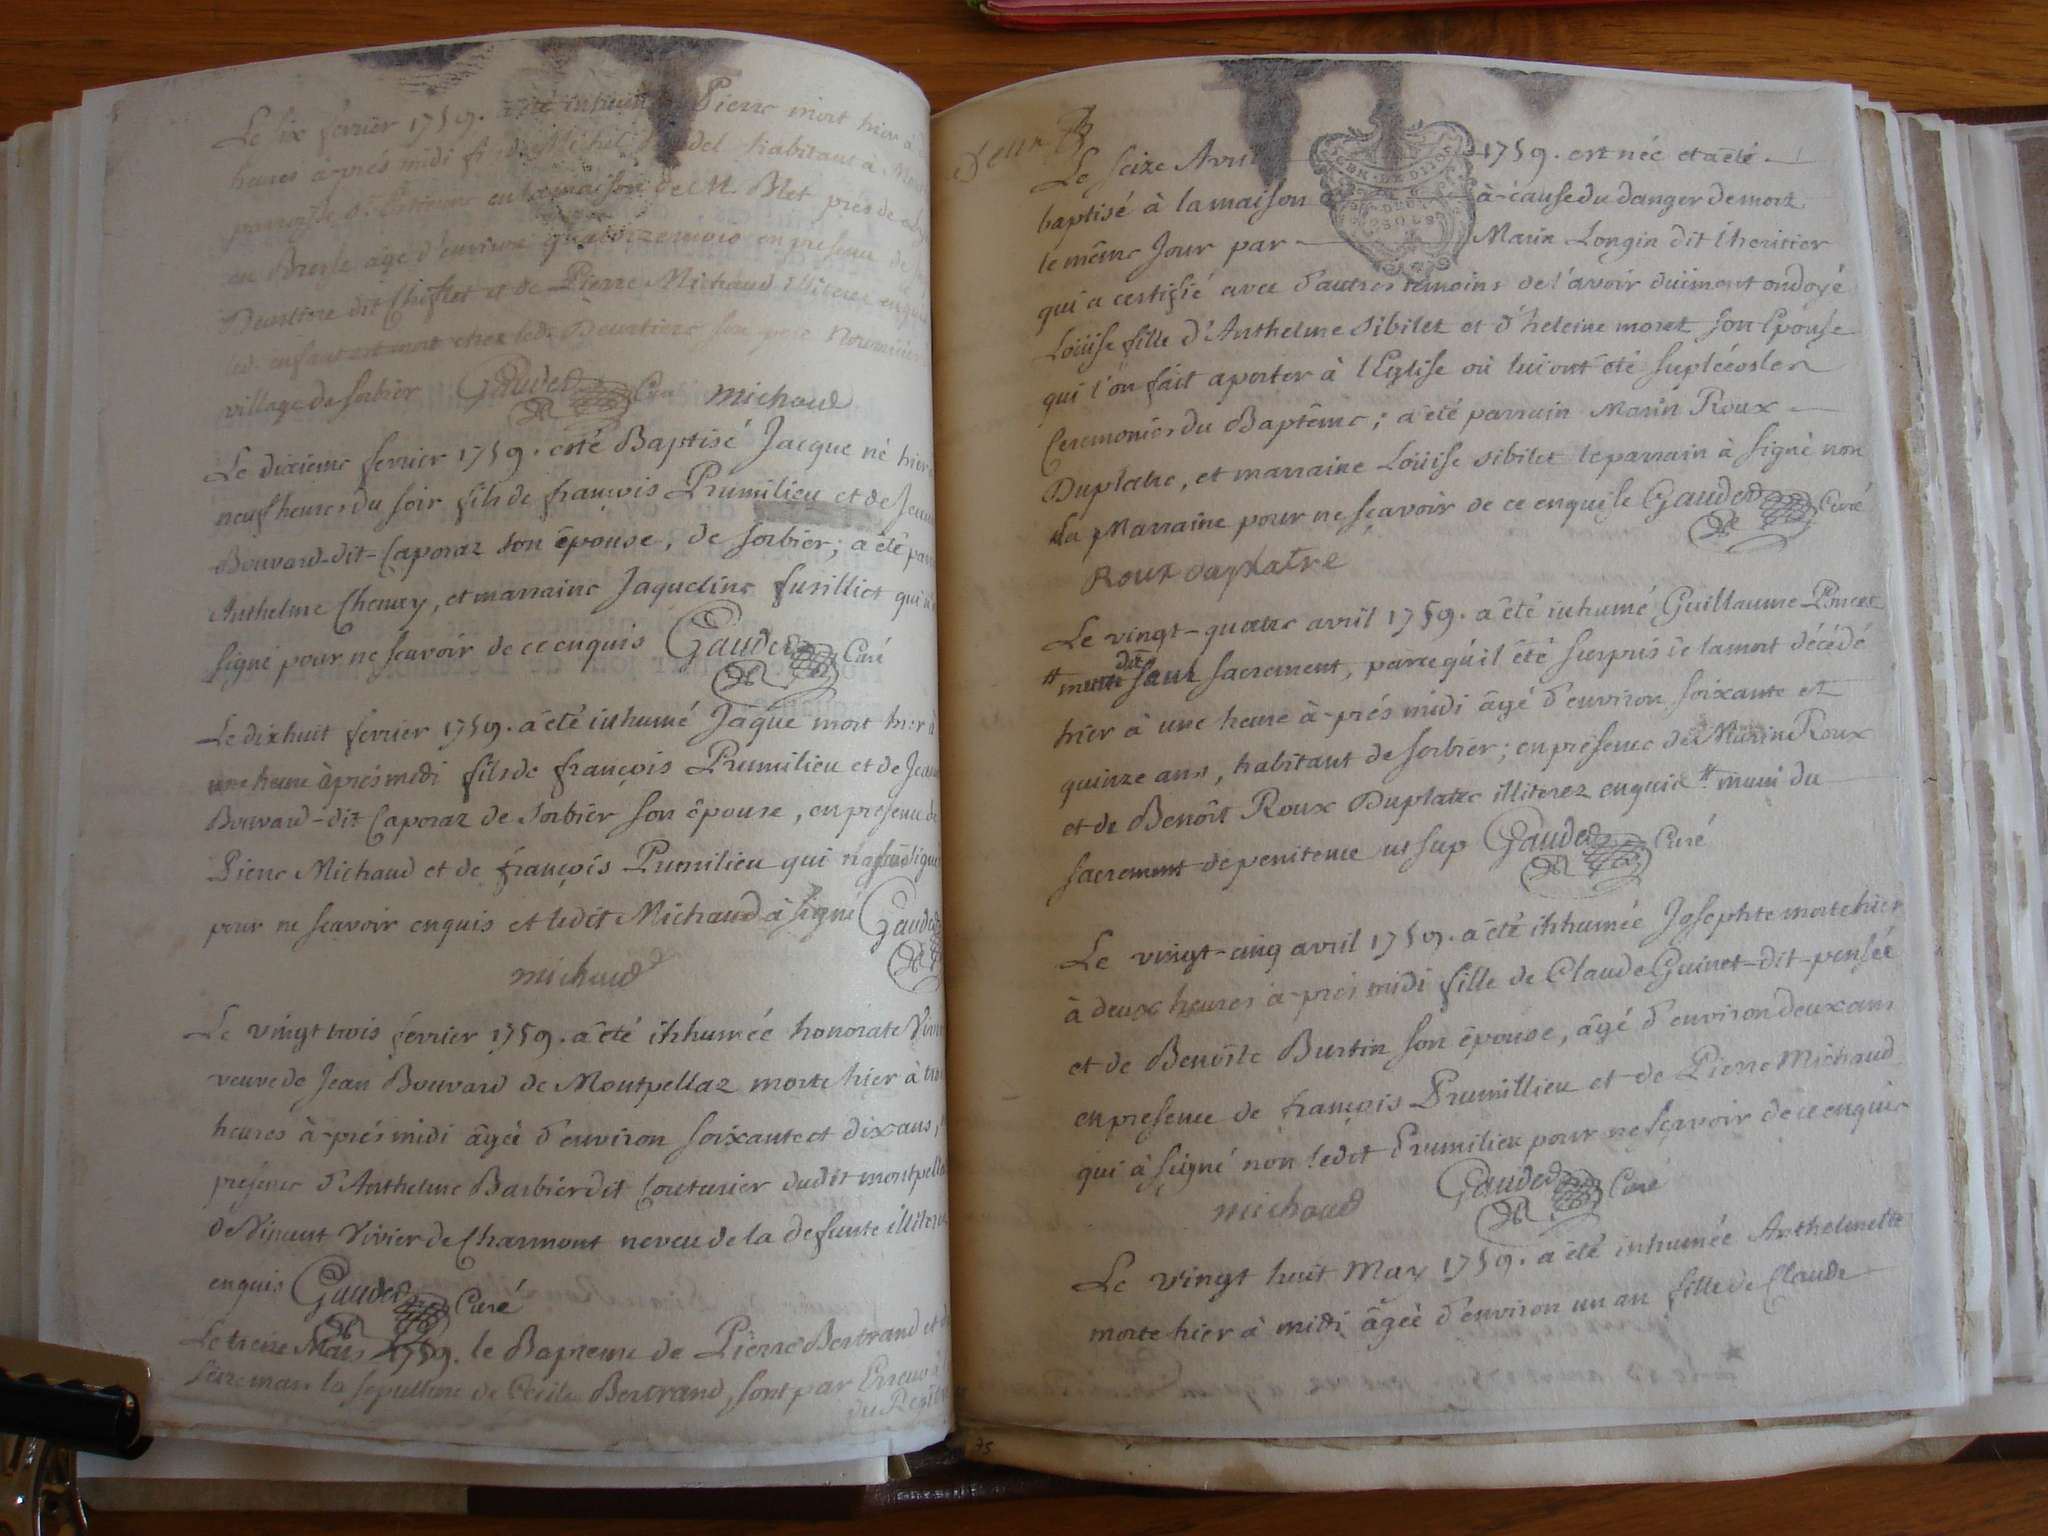 Le six fevrier 1759. a êté inhumé Pierre mort hier à
heures à-prés midi fils de Michel habitant à
parroisse St Estienne en la maison de M. Blet prés de
en Bresse âgé d'environ quatorze mois en presence de
dit Chiflet et de Pierre Michaud illiterez enquis
led. enfant est mort chez led. son pere Nourricier
village de sorbier Gaudet Curé michaud
Le dixieme fevrier 1759. esté Baptisé Jacque né hier
neuf heures du soir fils de françois Prumilieu et de Jeanne
Bouvard-dit-Caporaz son êpouse, de sorbier; a êté
Anthelme Chemey, et marraine Jaqueline fusilliet qui
signé pour ne scavoir de ce enquis Gaudet Curé
Le dixhuit fevrier 1759. a êté inhumé Jaque mort hier à
une heure à prés midi fils de françois Prumilieu et de
Bouvard-dit Caporaz de sorbier son êpouse, en presence de
Pierre Michaud et de françois Prumilieu qui
pour ne scavoir enquis et ledit Michaud à signé Gaudet
michaud
Le vingt trois février 1759. a êté inhumée honorate
veuve de Jean Bouvard de Montpellaz morte hier à
heures à-prés midi âgée d'environ soixante et dix ans,
presence d'Anthelme Barbier dit Couturier dudit
de Vincent Vivier de Charmont neveu de la defunte
enquis Gaudet Curé
Le treize Mars 1759. le Bapteme de Pierre Bertrand et
seize mars la sepulture de Cecile Bertrand, sont par Erreur
du
Le seize Avril 1759. est née et a êté
baptisé à la maison à-cause du danger de mort
le même Jour par Marin Longin dit l'heritier
qui a certifié avec d'autres temoins de l'avoir duimont ondoyé
Loüise fille d'Anthelme Sibilet et d'heleine moret son Epouse
qui l'on fait aporter à l'Eglise où lui ont êté supléés les
Ceremonies du Baptême; a êté parrain Marin Roux
Duplatre, et marraine Loüise sibilet le parrain à signé non
La Marraine pour ne sçavoir de ce enquise Gaudet Curé
Roux duplatre
Le vingt-quatre avril 1759. a êté inhumé Guillaume Poncet
dit sans sacrement, parce qu'il êté surpris de la mort décédé
hier à une heure à-prés midi âgé d'environ soixante et
quinze ans, habitant de sorbier; en présence de Marin Roux
et de Benoît Roux Duplatre illiterez enquis # muni du
sacrement de penitence ut sup Gaudet Curé
Le vingt-cinq avril 1759. a êté inhumée Josephte morte hier
à deux heures à-prés midi fille de Claude Guinet-dit-pensée
et de Benoîte Burtin son êpouse, âgé d'environ deux ans
en presence de françois Prumillieu et de Pierre Michaud
qui à signé non ledit Prumilieu pour ne sçavoir de ce enquis
michaud Gaudet Curé
Le vingt huit May 1759. a êté inhumée Anthelmette
morte hier à midi âgée d'environ un an fille de Claude